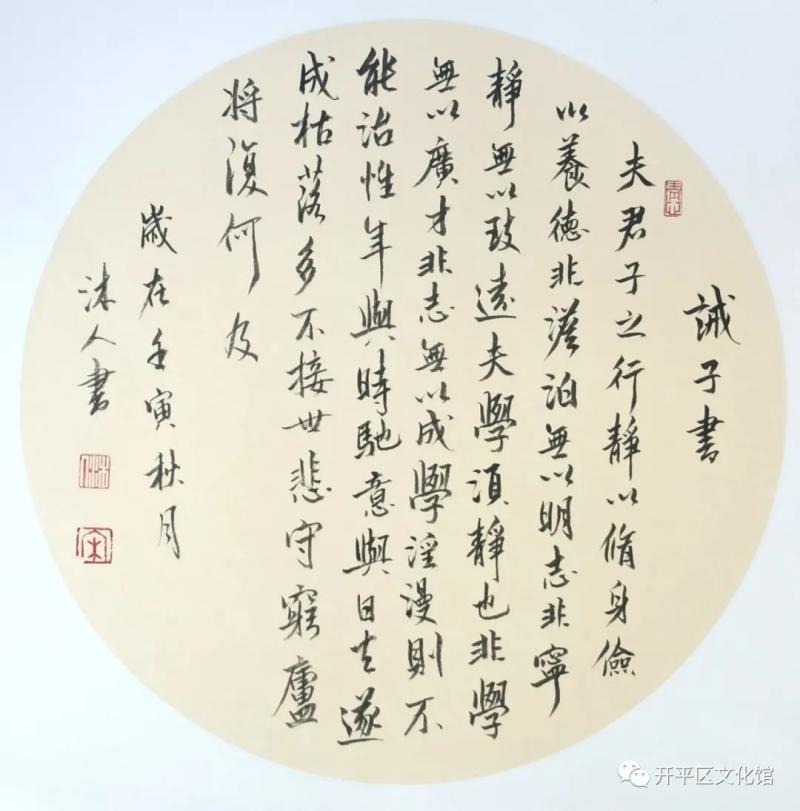 誡子書
夫君子之行靜以脩身儉
以養德非澹泊無以明志非寧
靜無以致遠夫學須靜也非學
無以廣才非志無以成學淫漫則不
能治性年與時馳意與日去遂
成枯落多不接世悲守窮廬
将復何及
歲在壬寅秋月
沐人書
开平区文化馆